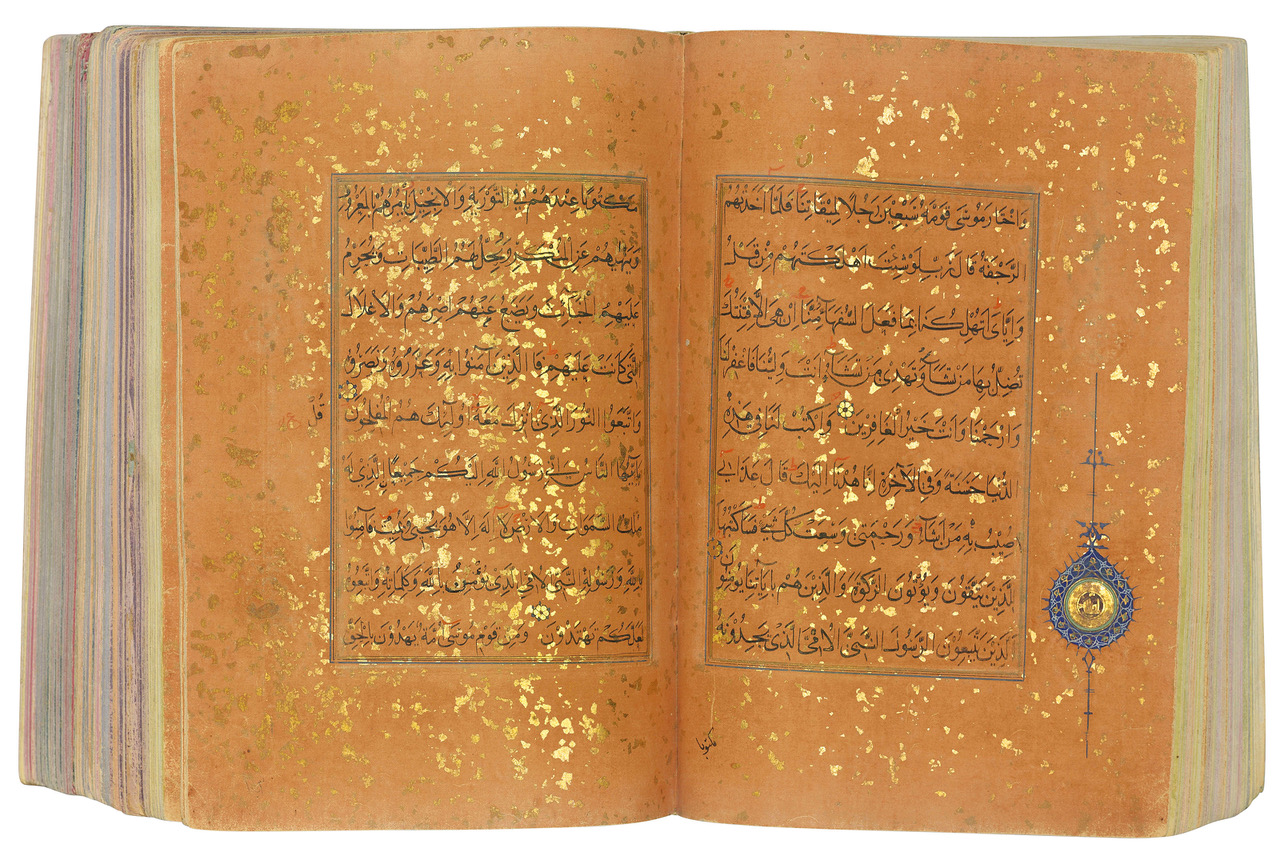 واختار موسى قومه سبعين رجلا لميقاتنا فلما اخذتهم
الرجفة قال رب لو شئت اهلكتهم من قبل
واياى اتهلكنا بما فعل السفهاء منا ان هى الا فتنتك
تضل بها من تشاء وتهدى من تشاء انت ولينا فاغفر لنا
وارحمنا وانت خير الغافرين واكتب لنا فى هذه
الدنيا حسنة وفى الآخرة انا هدنا اليك قال عذابى
اصيب به من اشاء ورحمتى وسعت كل شىء فساكتبها
للذين يتقون ويؤتون الزكوة والذين هم بآياتنا يؤمنون
الذين يتبعون الرسول النبى الامى الذى يجدونه
مكتوبا
مكتوبا عندهم فى التورية والانجيل يأمرهم بالمعروف
وينهيهم عن المنكر ويحل لهم الطيبات ويحرم
عليهم الخبائث ويضع عنهم اصرهم والاغلال
التى كانت عليهم فالذين آمنوا به وعزروه ونصروه
واتبعوا النور الذى انزل معه اولئك هم المفلحون
قل
يا ايها الناس انى رسول الله اليكم جميعا الذى له
ملك السموات والارض لا اله الا هو يحيى ويميت فآمنوا
بالله ورسوله النبى الامى الذى يؤمن بالله وكلماته واتبعوه
لعلكم تهتدون ومن قوم موسى امة يهدون بالحق